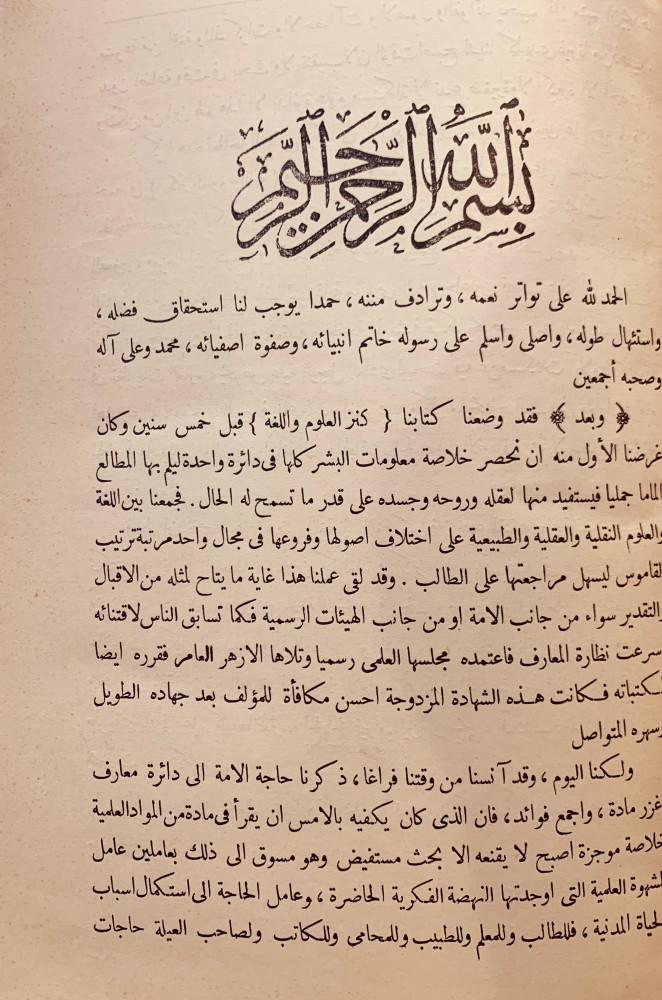 بسم الله الرحمن الرحيم
الحمد لله على تواتر نعمه ، وترادف مننه ، حمدا يوجب لنا استحقاق فضله ،
واستئهال طوله ، واصلى واسلم على رسوله خاتم انبيائه ، وصفوة اصفيائه ، محمد وعلى آله
وصحبه أجمعين
﴿ وبعد ﴾ فقد وضعنا كتابنا { كنز العلوم واللغة } قبل خمس سنين وكان
غرضنا الأول منه ان نحصر خلاصة معلومات البشر كلها فى دائرة واحدة ليلم بها المطالع
الماما جمليا فيستفيد منها لعقله وروحه وجسده على قدر ما تسمح له الحال . فجمعنا بين اللغة
والعلوم النقلية والعقلية والطبيعية على اختلاف اصولها وفروعها فى مجال واحد مرتبة ترتيب
لقاموس ليسهل مراجعتها على الطالب . وقد لقى عملنا هذا غاية ما يتاح لمثله من الاقبال
والتقدير سواء من جانب الامة او من جانب الهيئات الرسمية فكما تسابق الناس لاقتنائه
سرعت نظارة المعارف فاعتمده مجلسها العلمى رسميا وتلاها الازهر العامر فقرره ايضا
لكتباته فكانت هذه الشهادة المزدوجة احسن مكافأة للمؤلف بعد جهاده الطويل
وسهره المتواصل
ولكنا اليوم ، وقد آنسنا من وقتنا فراغا ، ذكرنا حاجة الامة الى دائرة معارف
غزر مادة ، واجمع فوائد ، فان الذى كان يكفيه بالامس ان يقرأ فى مادة من المواد العلمية
خلاصة موجزة اصبح لا يقنعه الا بحث مستفيض وهو مسوق الى ذلك بعاملين عامل
لشهوة العلمية التى اوجدتها النهضة الفكرية الحاضرة ، وعامل الحاجة الى استكمال اسباب
لحياة المدنية ، فللطالب وللمعلم وللطبيب وللمحامى وللكاتب ولصاحب العيلة حاجات